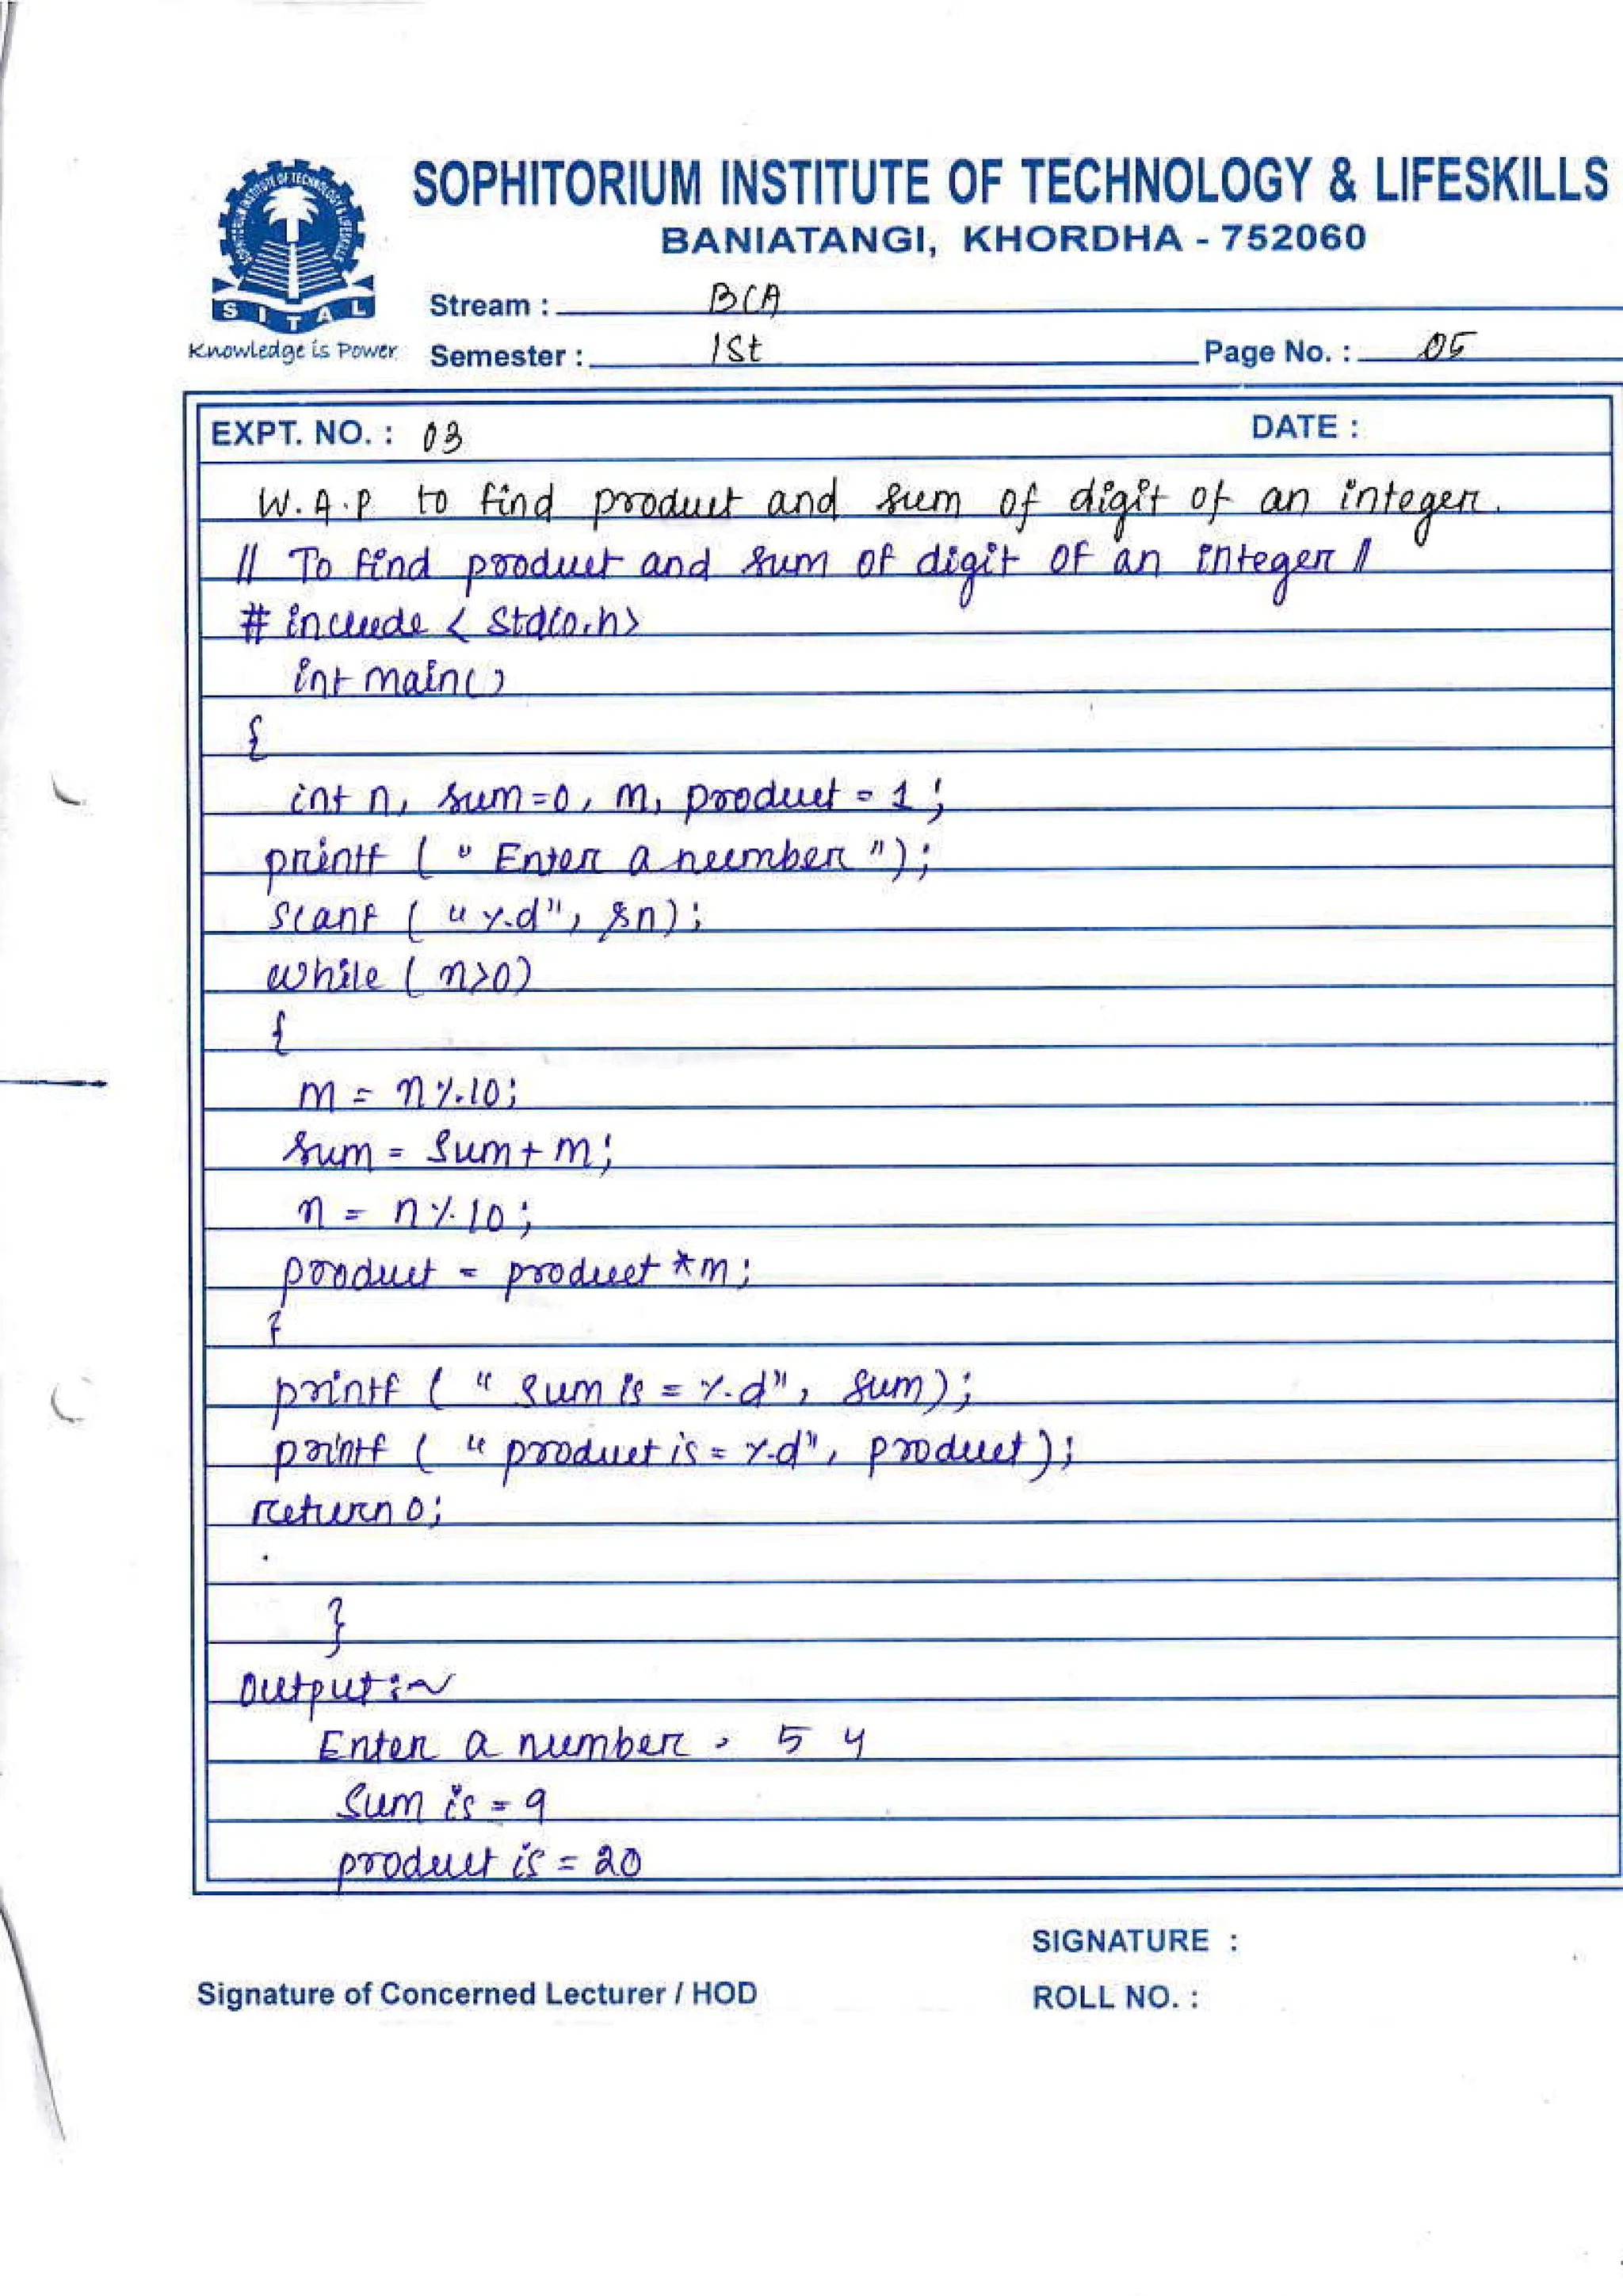 SOPHITORIUM INSTITUTE OF TECHNOLOGY & LIFESKILLS
BANIATANGI, KHORDHA - 752060
SITAL
Knowledge is Power
Stream : BCA
Semester : 1St Page No. : 05
EXPT. NO. : 03 DATE :
W.A.P to find product and sum of digit of an integer.
// To find product and sum of digit of an integer //
# include < Stdio.h>
int main()
{
int n, sum=0, m, product = 1;
printf ( " Enter a number ");
scanf ( "%d", &n);
while ( n>0)
{
m = n%10;
sum = sum+m;
n = n%10;
product = product *m;
}
printf ( " sum is = %d", sum);
printf ( " product is = %d", product);
return 0;
}
Output :~
Enter a number : 5 4
Sum is = 9
product is = 20
SIGNATURE :
Signature of Concerned Lecturer / HOD
ROLL NO. :